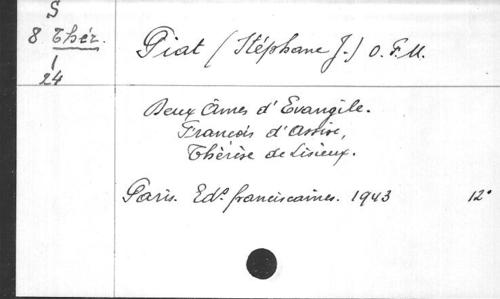 S
8 Thér.
1
24
Piat (Stéphane J.) O.F.M.
Deux Âmes d'Evangile.
Francois d'Assise,
Thérèse de Lisieux.
Paris. Eds. franciscaines. 1943 12°